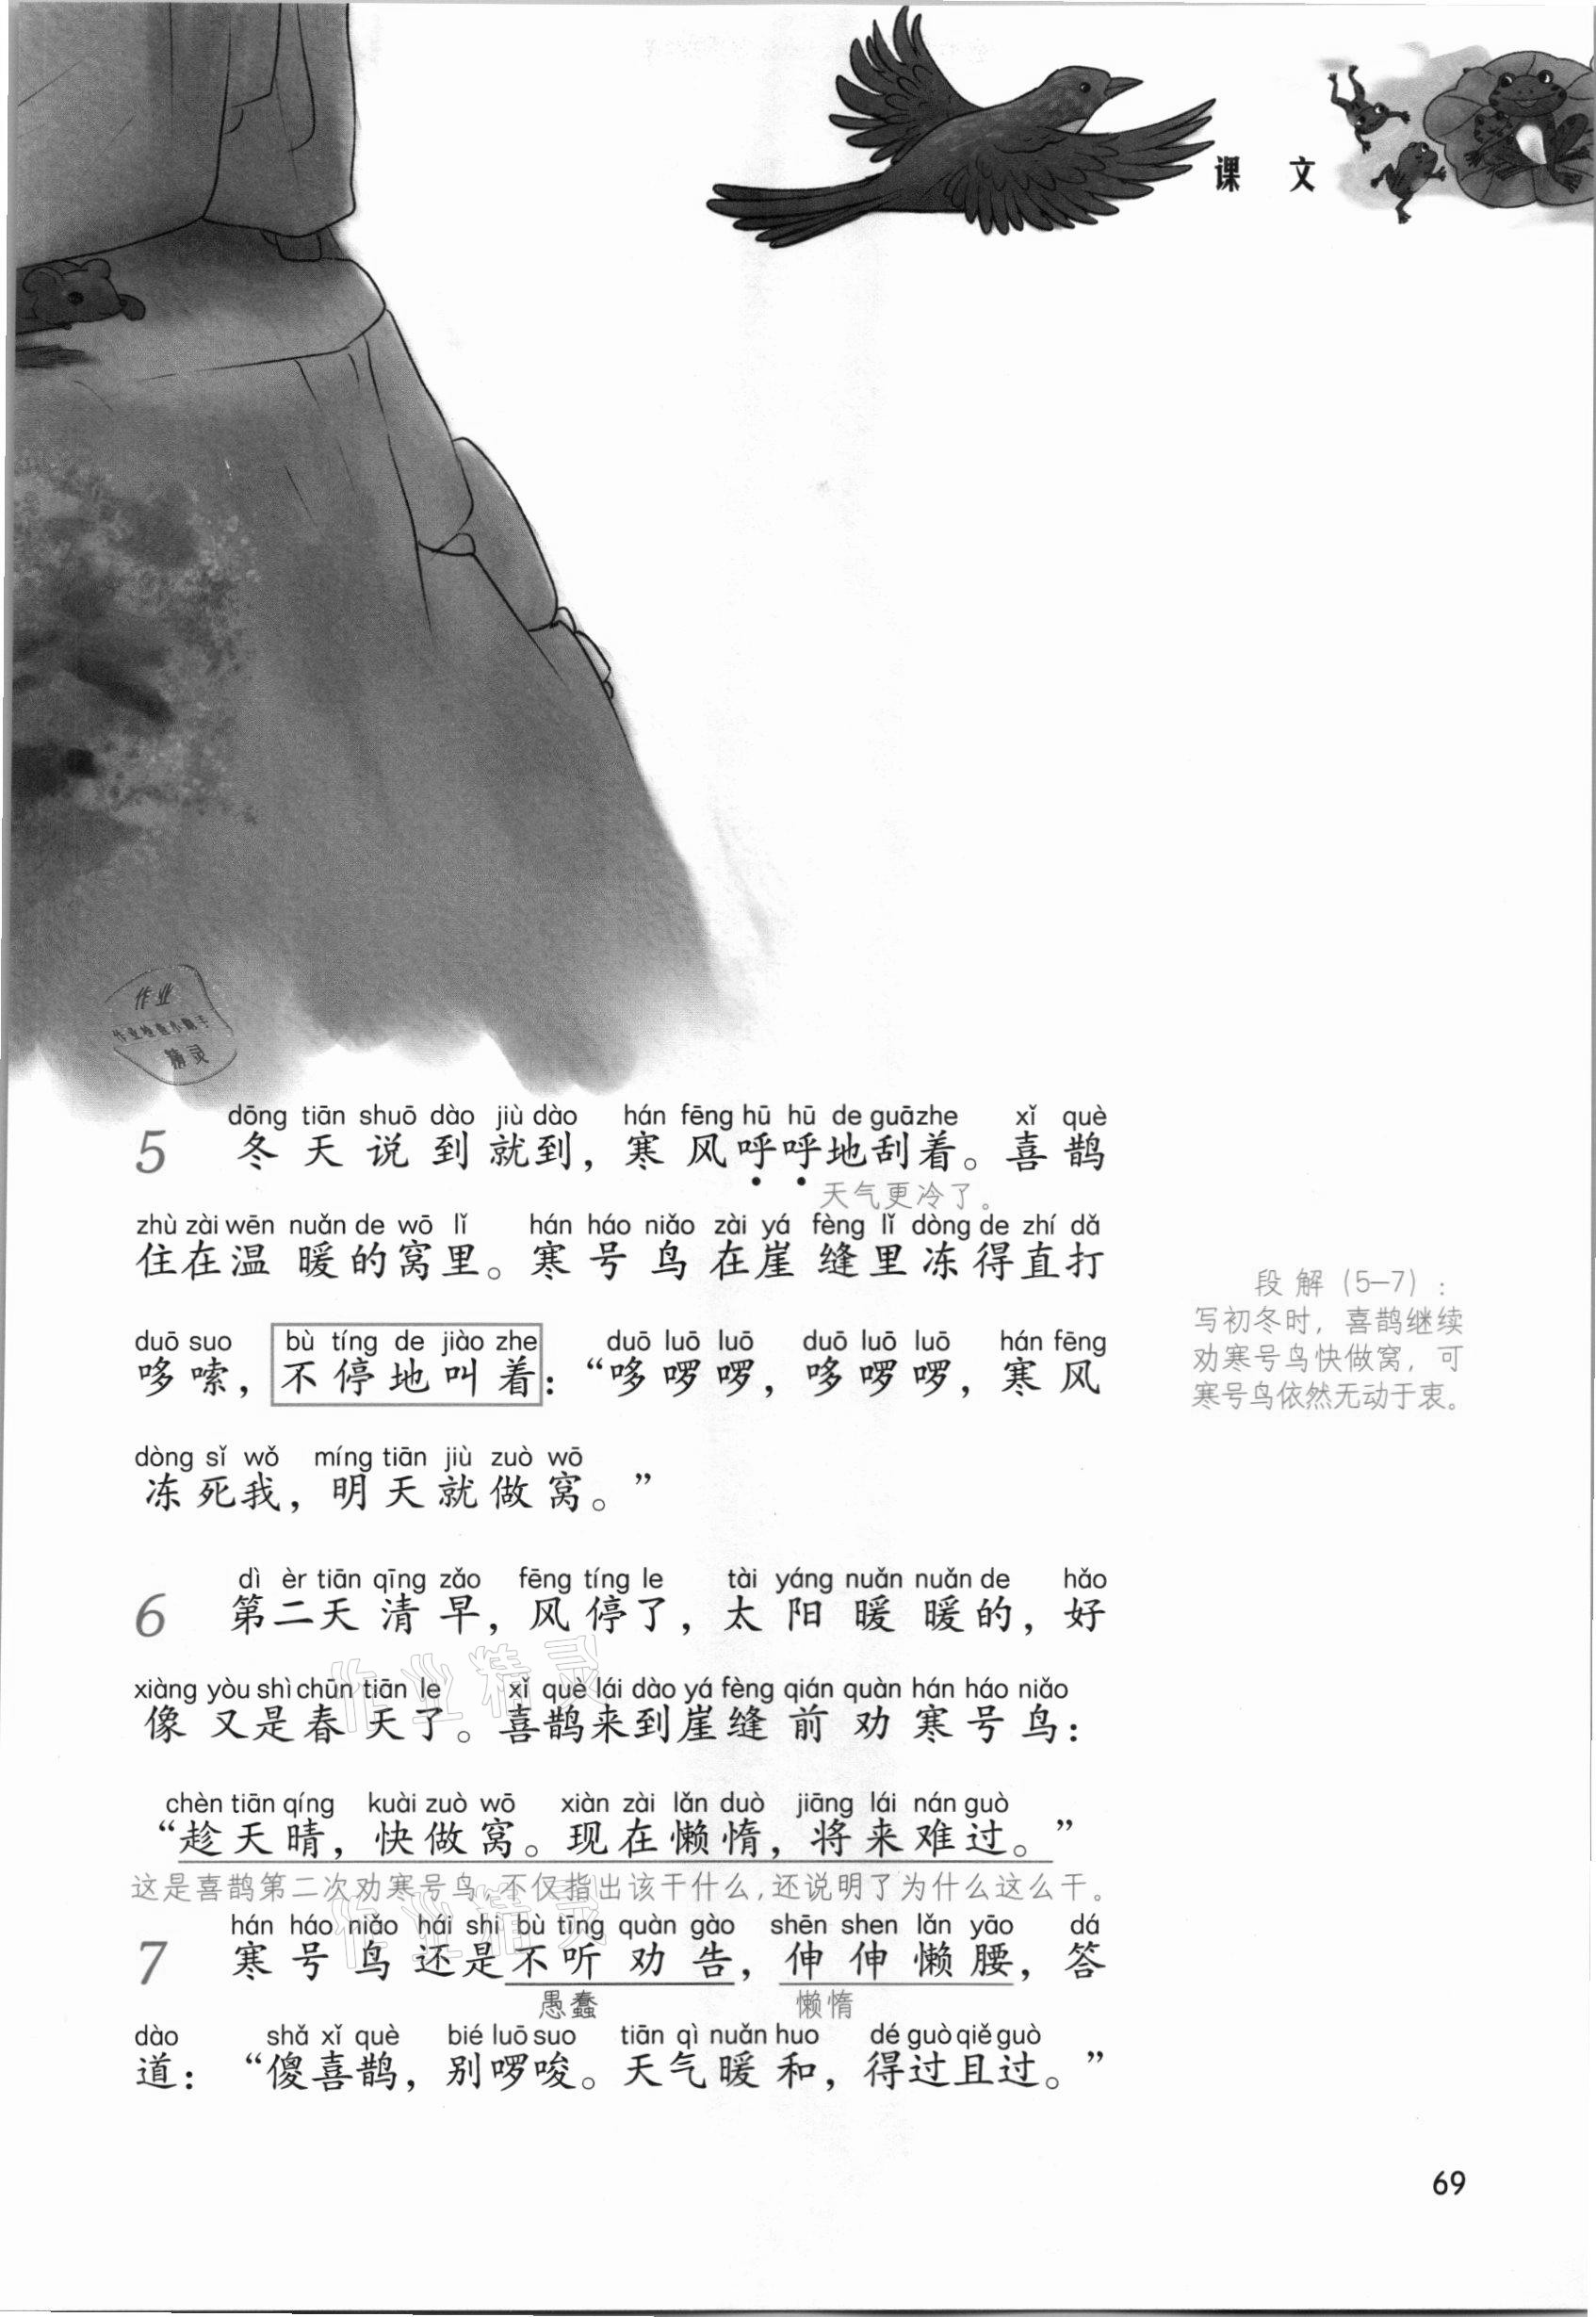 课 文
作业
精灵
dōng tiān shuō dào jiù dào hán fēng hū hū de guā zhe xǐ què
5 冬天说到就到，寒风呼呼地刮着。喜鹊
天气更冷了。
zhù zài wēn nuǎn de wō lǐ hán háo niǎo zài yá fèng lǐ dòng de zhí dǎ
住在温暖的窝里。寒号鸟在崖缝里冻得直打
duō suo bù tíng de jiào zhe duō luō luō duō luō luō hán fēng
哆嗦，不停地叫着：“哆啰啰，哆啰啰，寒风
dòng sǐ wǒ míng tiān jiù zuò wō
冻死我，明天就做窝。”
段解（5—7）：
写初冬时，喜鹊继续
劝寒号鸟快做窝，可
寒号鸟依然无动于衷。
dì èr tiān qīng zǎo fēng tíng le tài yáng nuǎn nuǎn de hǎo
6 第二天清早，风停了，太阳暖暖的，好
xiàng yòu shì chūn tiān le xǐ què lái dào yá fèng qián quàn hán háo niǎo
像又是春天了。喜鹊来到崖缝前劝寒号鸟：
chèn tiān qíng kuài zuò wō xiàn zài lǎn duò jiāng lái nán guò
“趁天晴，快做窝。现在懒惰，将来难过。”
这是喜鹊第二次劝寒号鸟，不仅指出该干什么，还说明了为什么这么干。
hán háo niǎo hái shi bù tīng quàn gào shēn shen lǎn yāo dá
7 寒号鸟还是不听劝告，伸伸懒腰，答
愚蠢 懒惰
dào shǎ xǐ què bié luō suo tiān qì nuǎn huo dé guò qiě guò
道：“傻喜鹊，别啰唆。天气暖和，得过且过。”
作业精灵
作业精灵
69